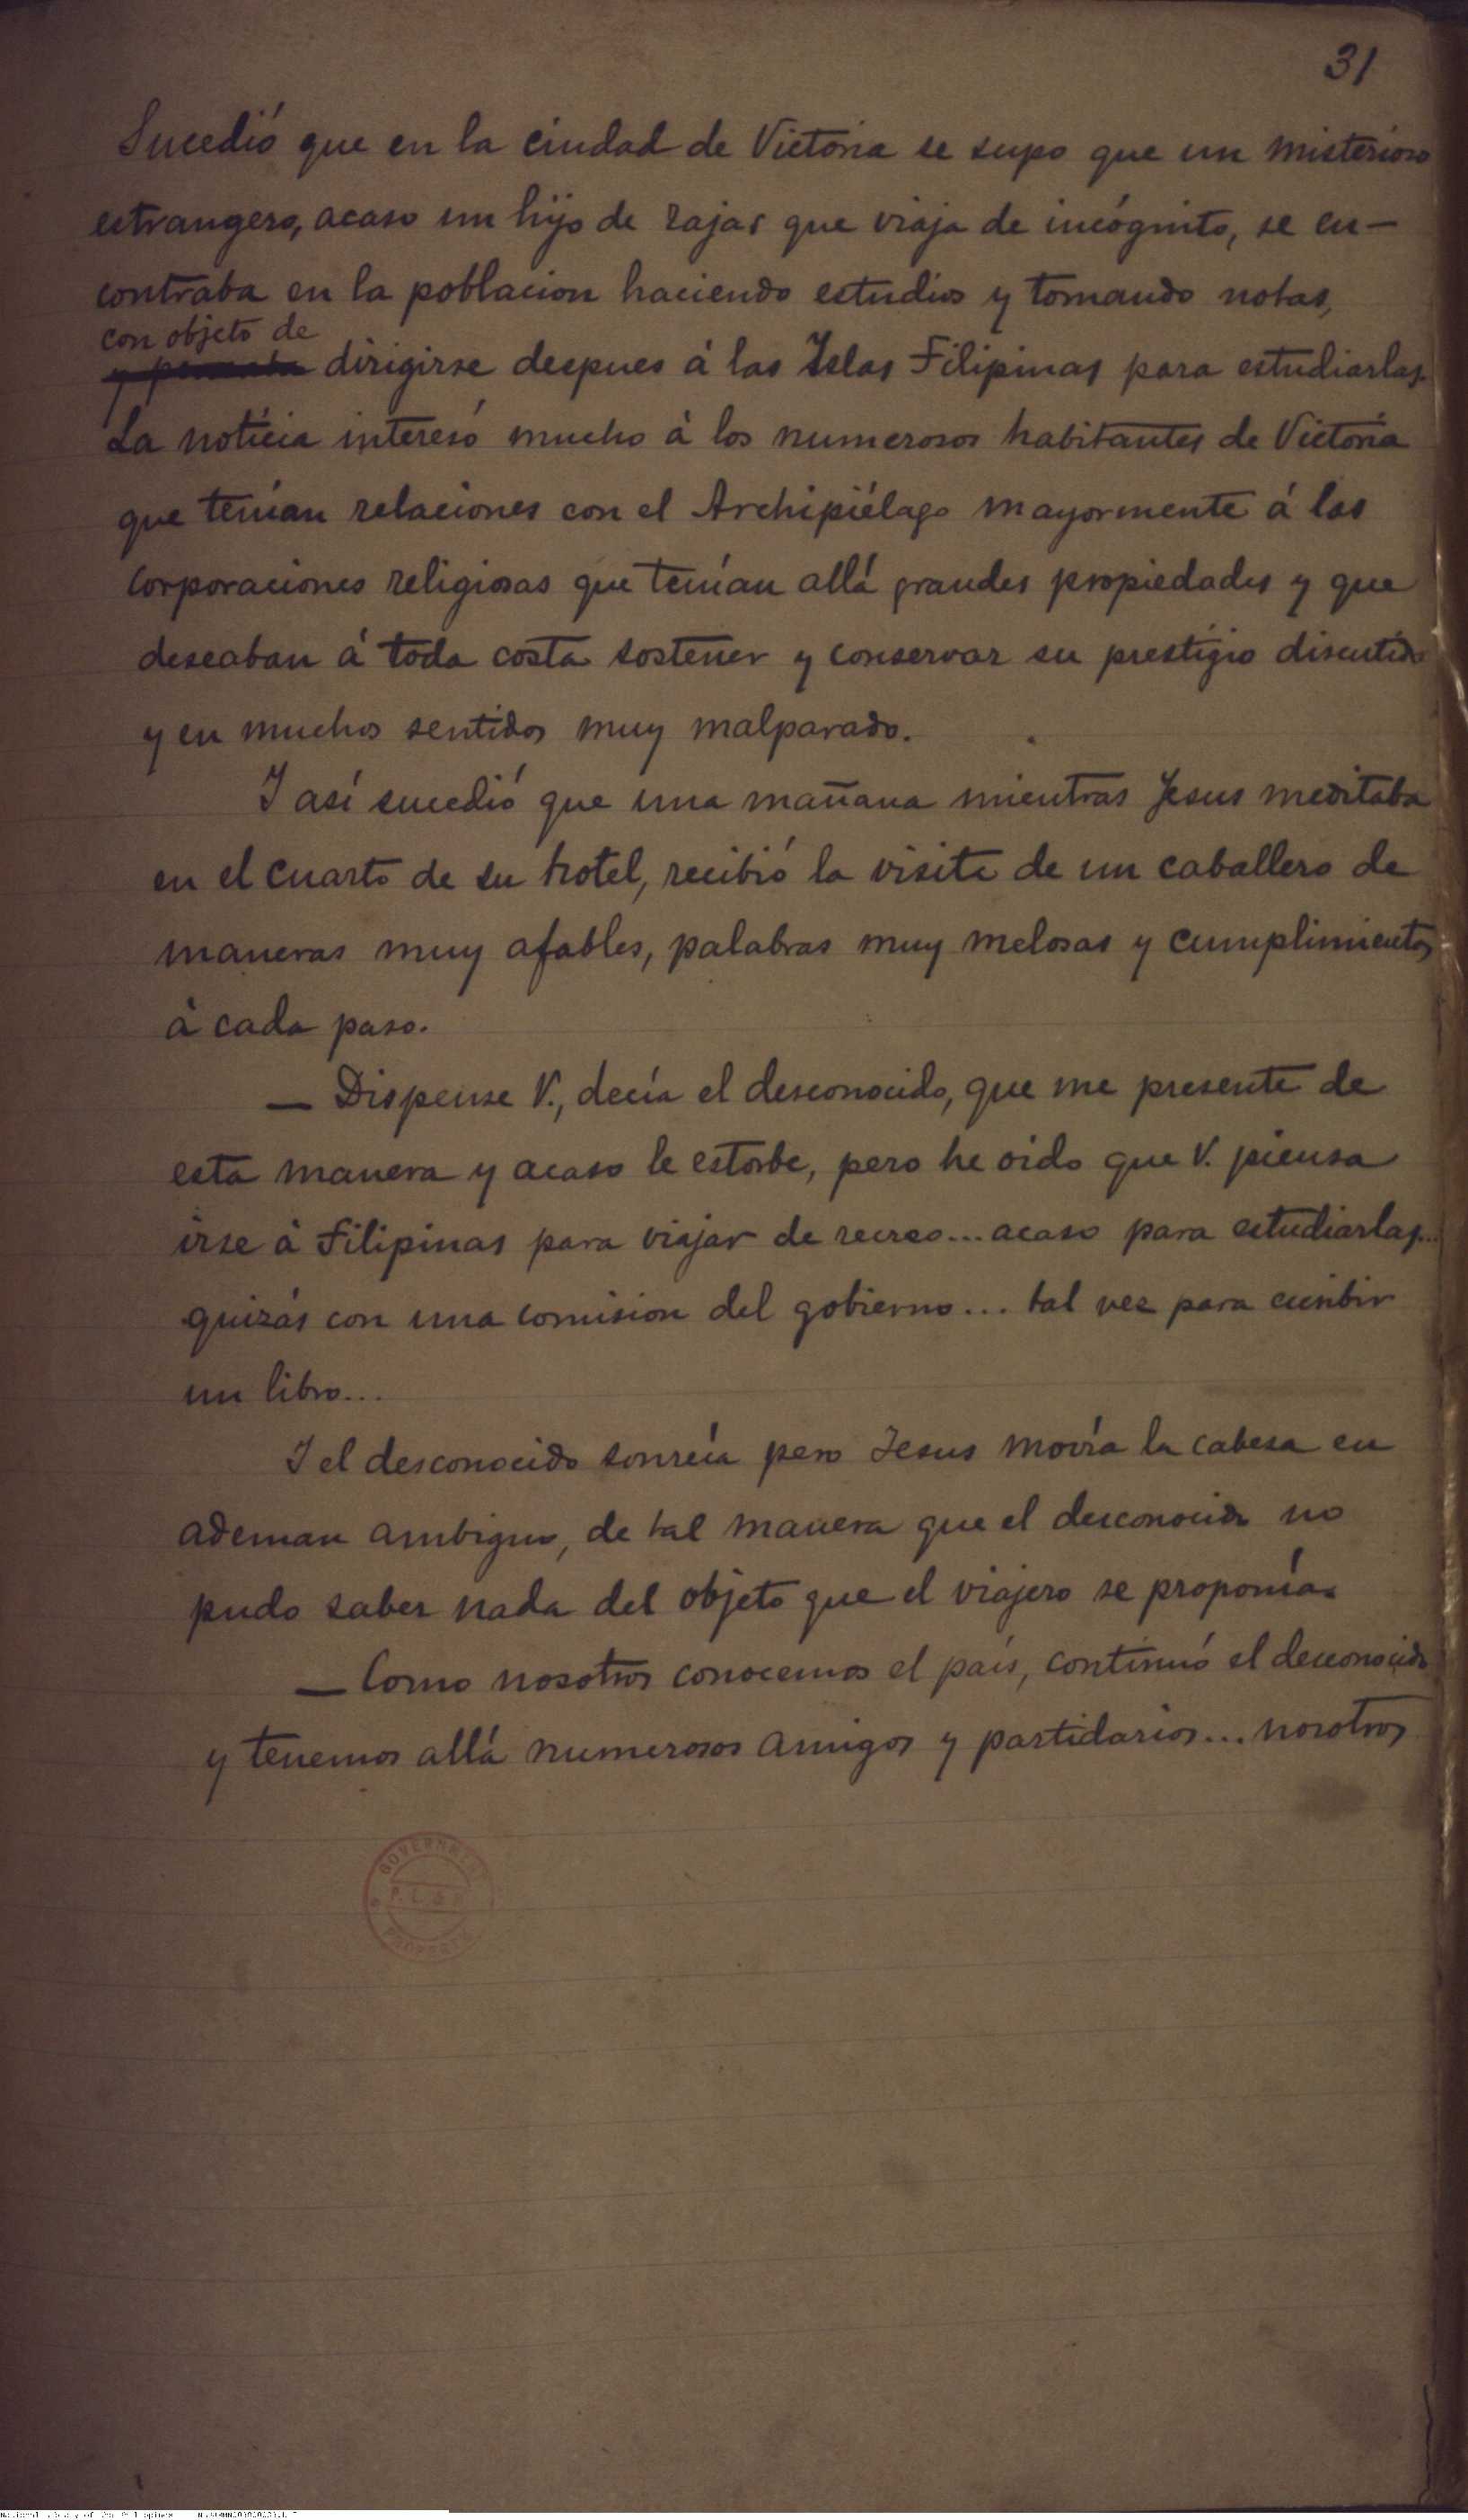 31
Sucedió que en la ciudad de Victoria se supo que un misterioso
estrangero, acaso un hijo de rajas que viaja de incógnito, se en-
contraba en la poblacion haciendo estudios y tomando notas,
con objeto de
dirigirse despues á las Islas Filipinas para estudiarlas.
La noticia interesó mucho á los numerosos habitantes de Victoria
que tenían relaciones con el Archipiélago mayormente á las
corporaciones religiosas que tenían allá grandes propiedades y que
deseaban á toda costa sostener y conservar su prestigio discutido
y en muchos sentidos muy malparado.
Y así sucedió que una mañana mientras Jesus meditaba
en el cuarto de su hotel, recibió la visita de un caballero de
maneras muy afables, palabras muy melosas y cumplimientos
á cada paso.
— Dispense V., decía el desconocido, que me presente de
esta manera y acaso le estorbe, pero he oido que V. piensa
irse á Filipinas para viajar de recreo... acaso para estudiarlas...
quizás con una comision del gobierno... tal vez para escribir
un libro...
Y el desconocido sonreía pero Jesus movía la cabesa en
ademan ambiguo, de tal manera que el desconocido no
pudo saber nada del objeto que el viajero se proponía.
— Como nosotros conocemos el país, continuó el desconocido
y tenemos allá numerosos amigos y partidarios... nosotros
GOVERNMENT
PROPERTY
National Library of the Philippines